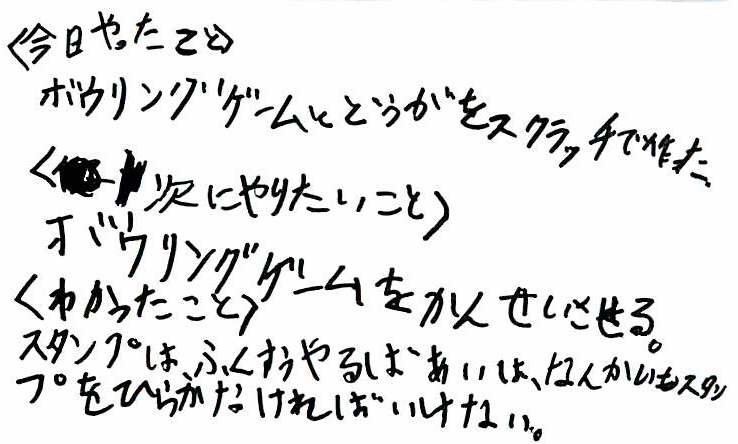 <今日やったこと>
ボウリングゲームとどうがをスクラッチで作った。
<次にやりたいこと>
ボウリングゲームをかんせいさせる。
<わかったこと>
スタンプは、ふくすうやるばあいは、なんかいもスタン
プをひらかなければいけない。